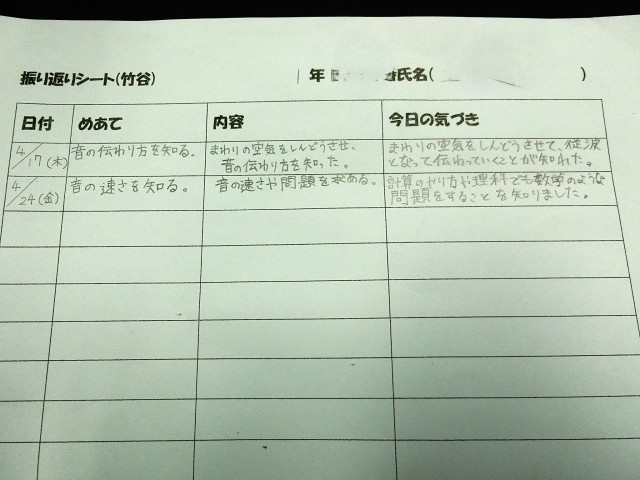 振り返りシート(竹谷)
1 年 氏名( )
日付 めあて 内容 今日の気づき
4/17(木) 音の伝わり方を知る。 まわりの空気をしんどうさせ、 まわりの空気をしんどうさせて、従波
音の伝わり方を知った。 となって伝わっていくことが知れた。
4/24(金) 音の速さを知る。 音の速さや問題を求める。 計算のやり方や理科でも数学のような
問題をすることを知りました。